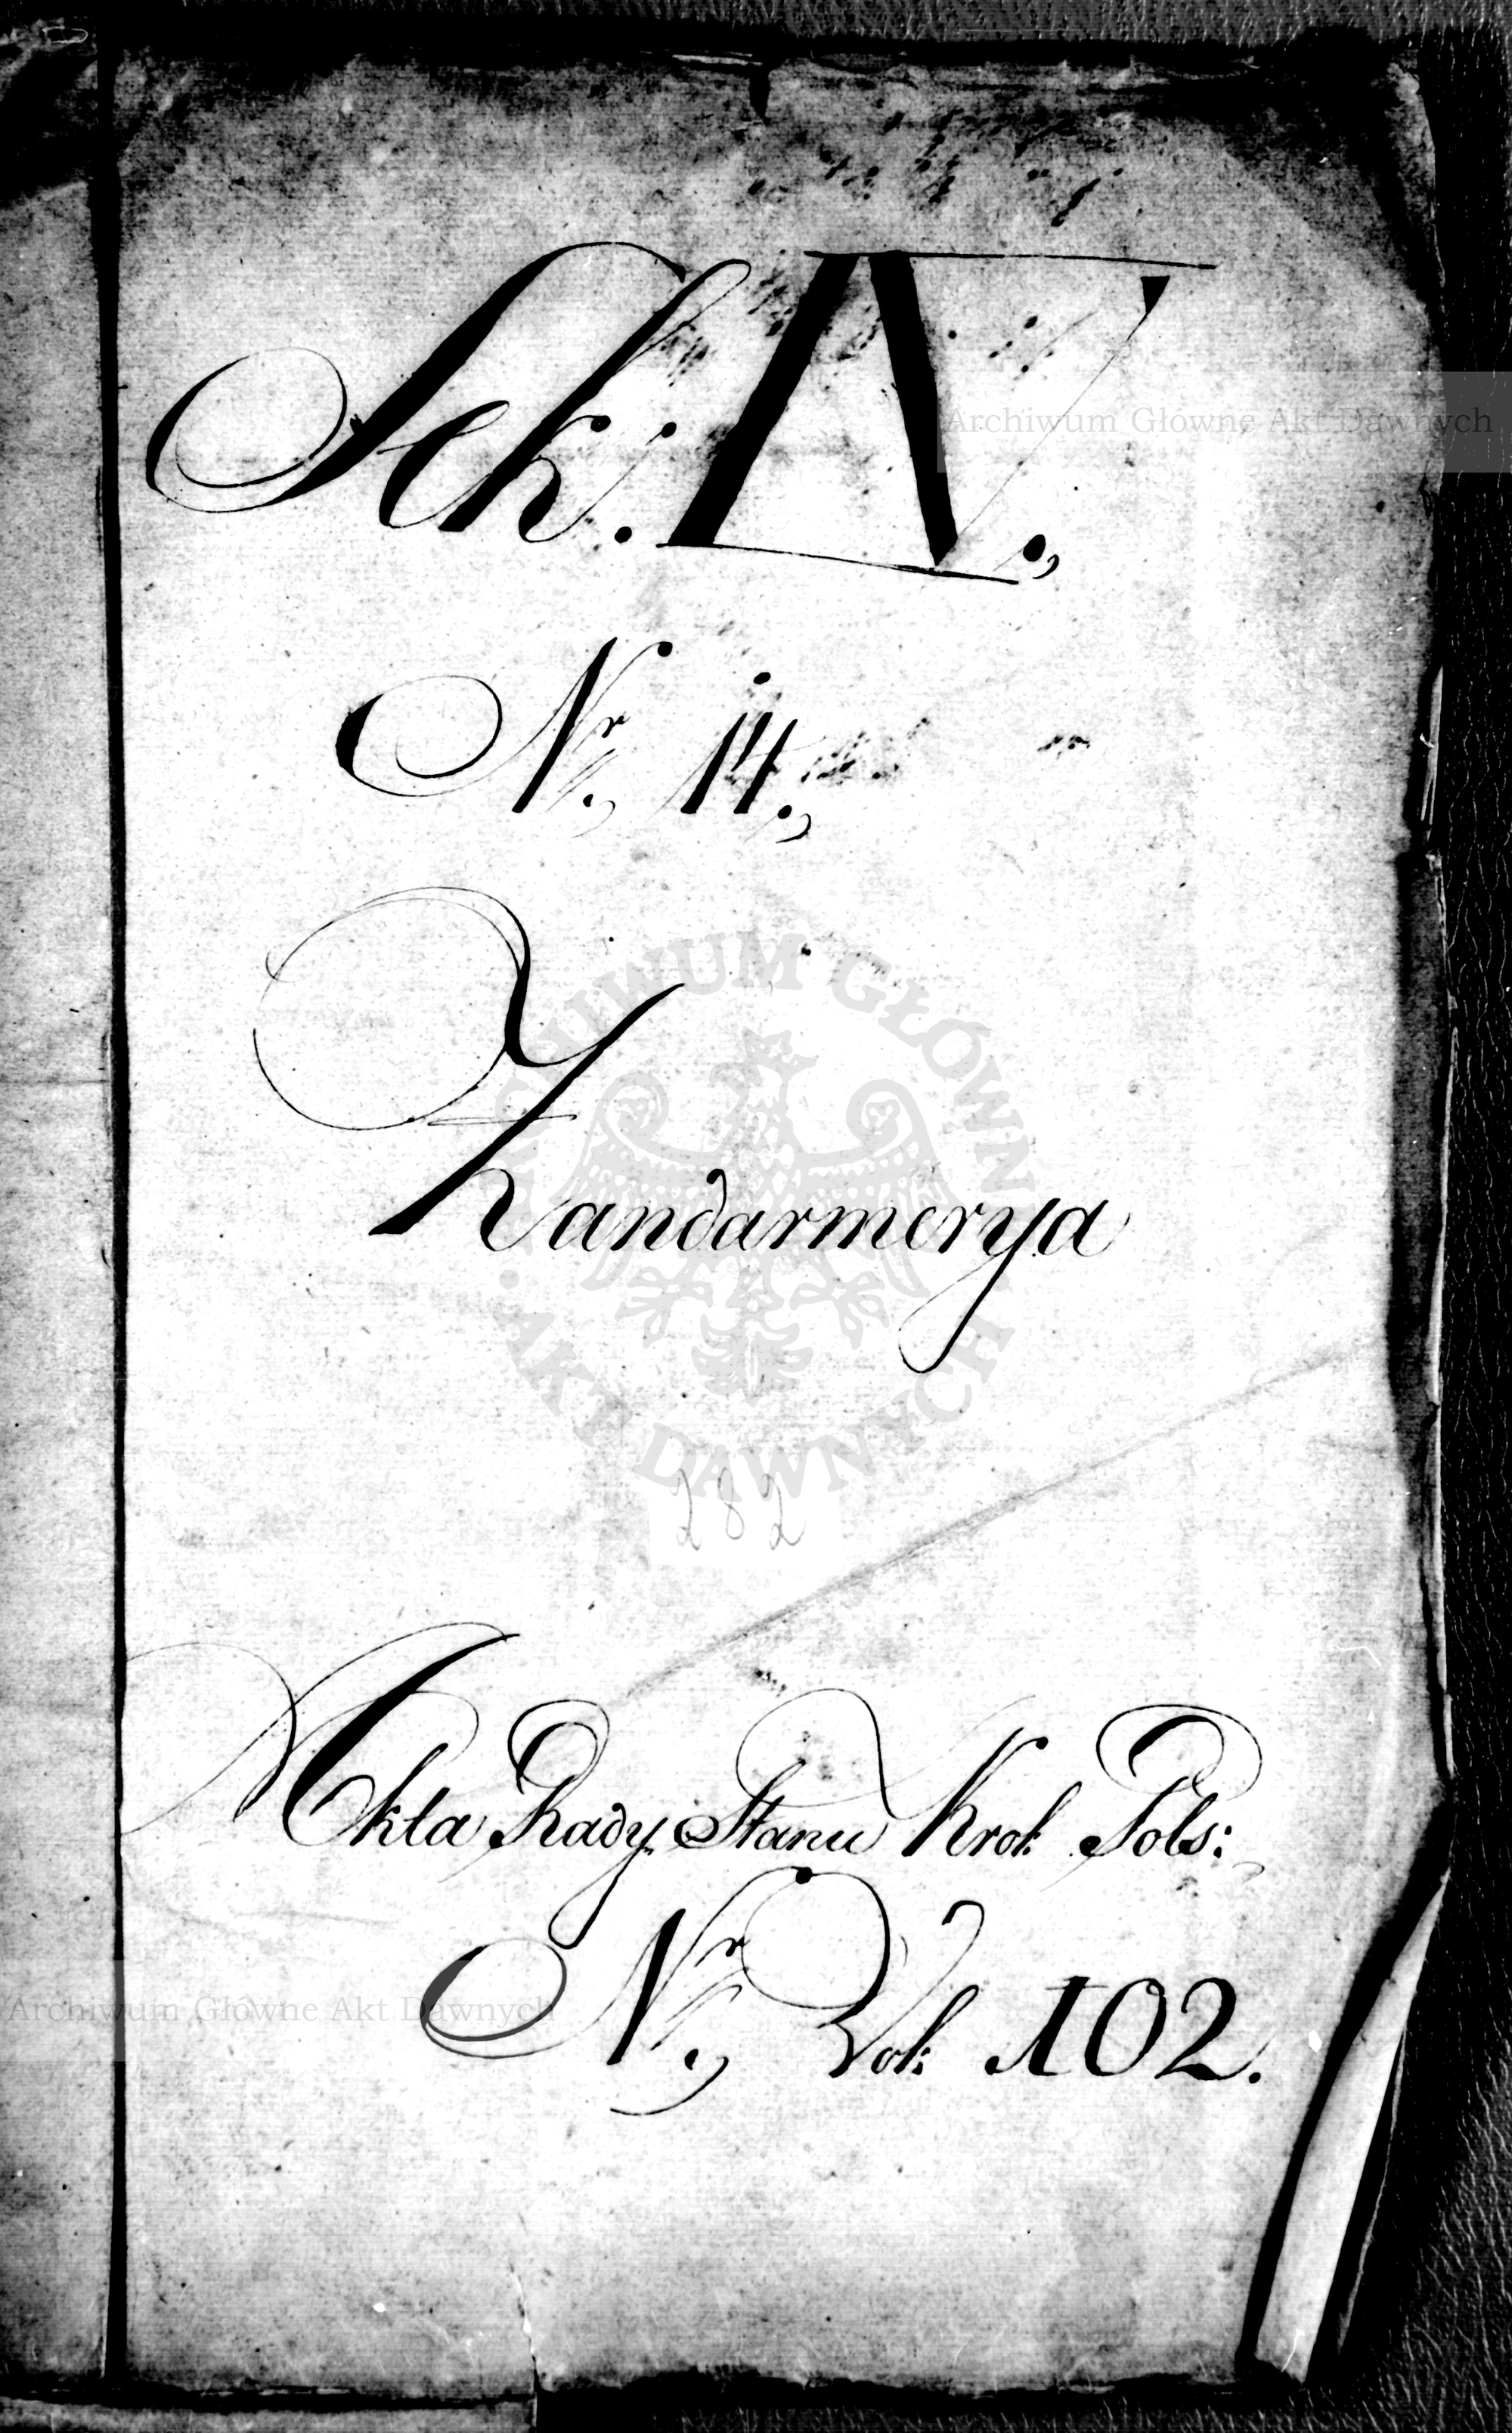 Sek: IV.,
Nr., 14.,
Żandarmerya
282
Akta Rady Stanu Krol: Pols:
Nr., Vol: 102.
Archiwum Główne Akt Dawnych
ARCHIWUM GŁÓWNE AKT DAWNYCH
Archiwum Główne Akt Dawnych